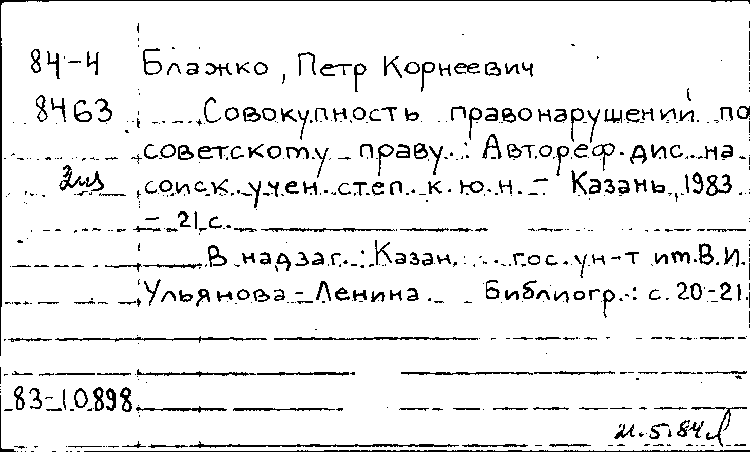 84-4 Блажко, Петр Корнеевич
8463 Совокупность правонарушений по
советскому праву. : Автореф. дис. на
соиск. учен. степ. к. ю. н. - Казань, 1983
- 21 с.
В надзаг. : Казан. гос. ун-т им. В. И.
Ульянова-Ленина. Библиогр.: с. 20-21.
83-10898